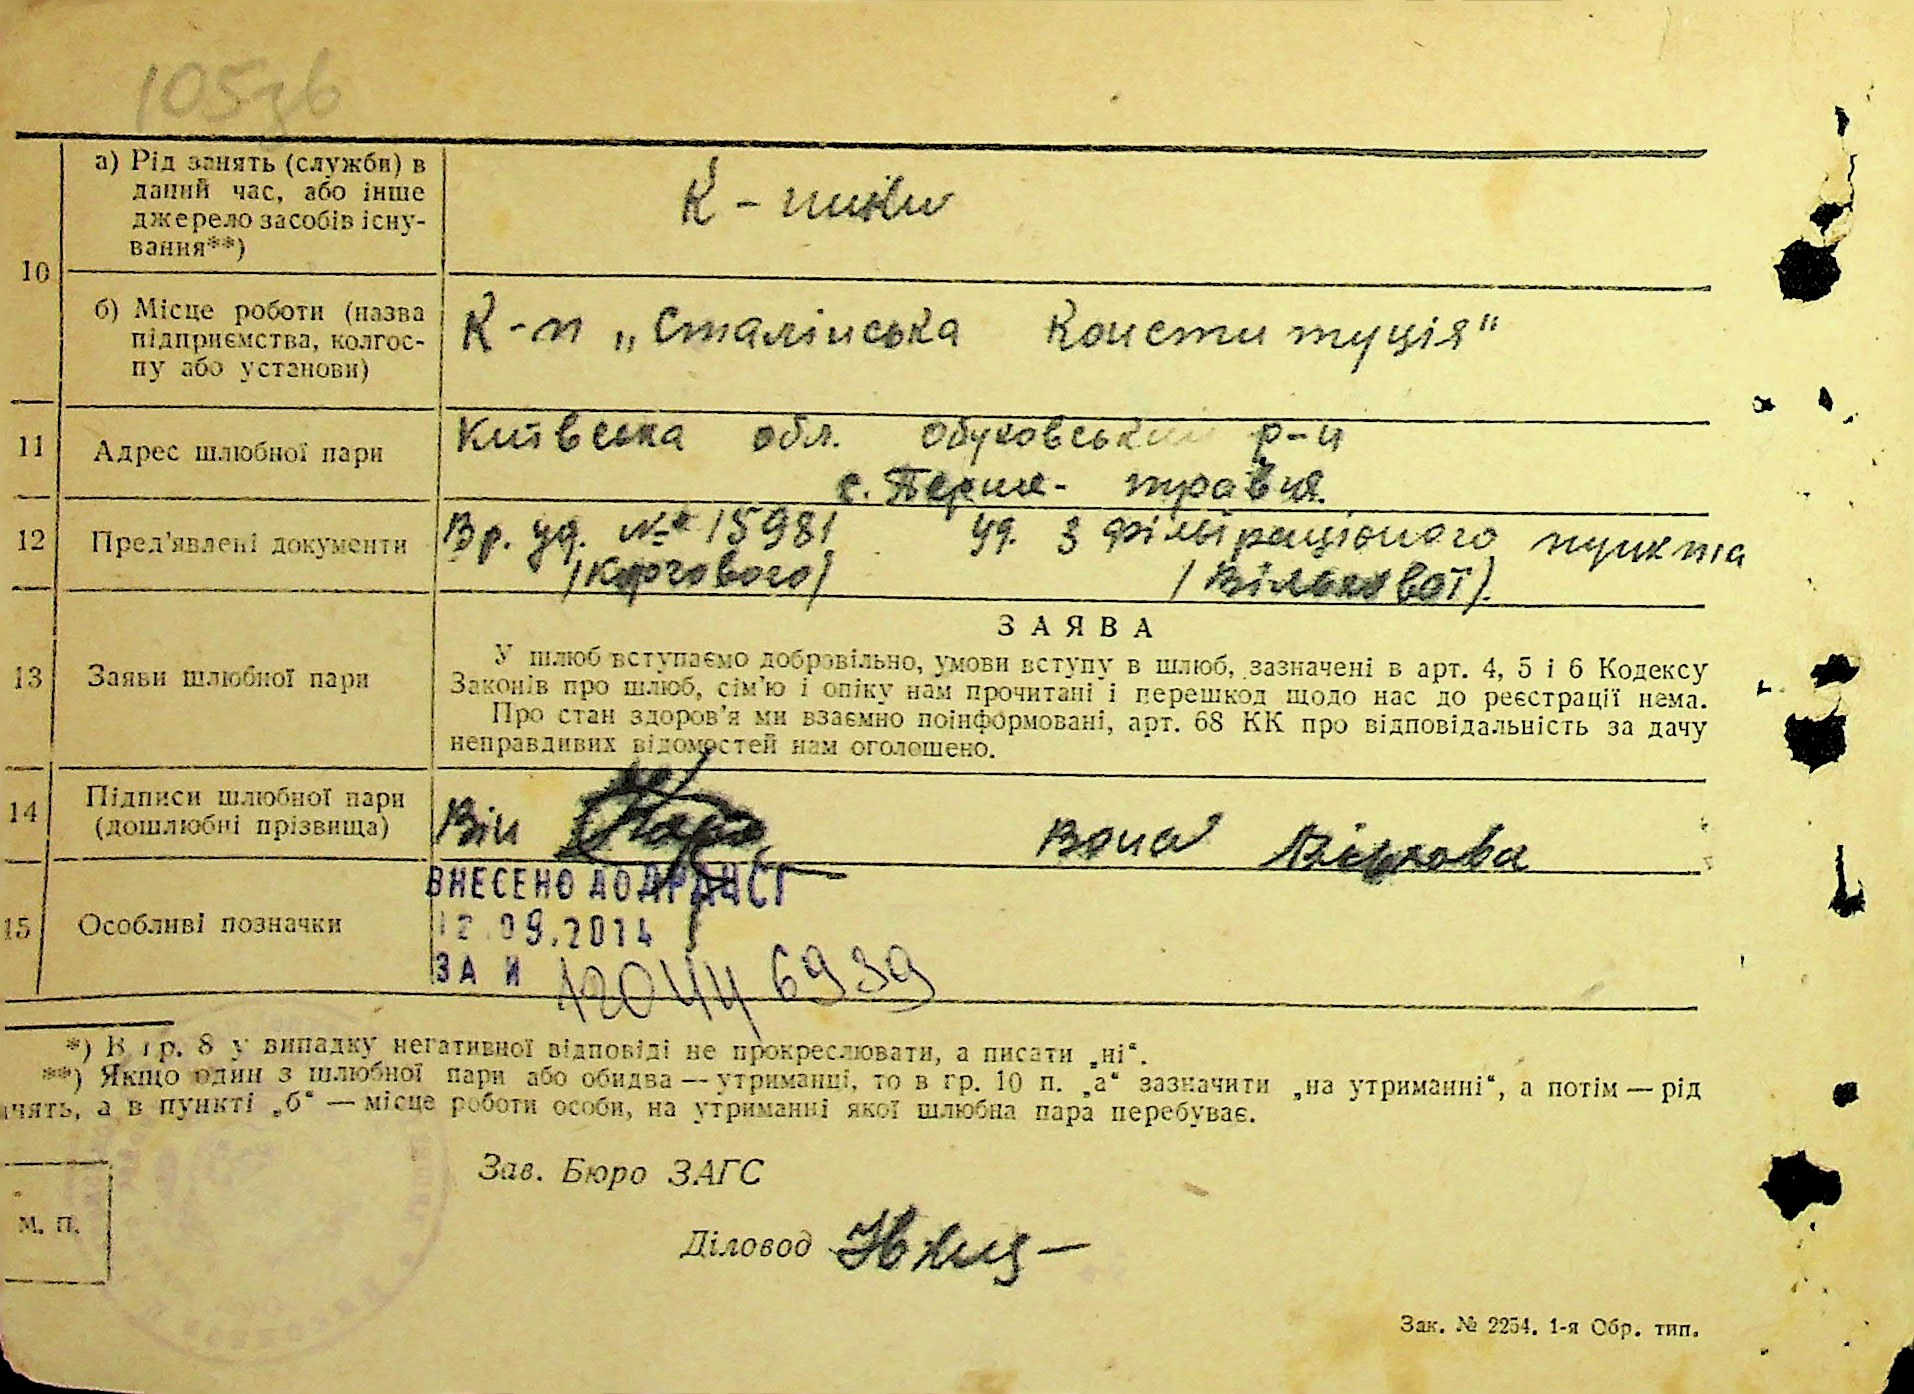 105зв
10
а) Рід занять (служби) в
даний час, або інше
джерело засобів існу-
вання**)
К-пики
б) Місце роботи (назва
підприємства, колгос-
пу або установи)
К-п „Сталінська Конституція"
11
Адрес шлюбної пари
Київська обл. Обуховський р-н
с. Перше- травня.
12
Пред'явлені документи
Вр. уд. № 15981 уд. з фільтраційного пункта
13
Заяви шлюбної пари
ЗАЯВА
У шлюб вступаємо добровільно, умови вступу в шлюб, зазначені в арт. 4, 5 і 6 Кодексу
Законів про шлюб, сім'ю і опіку нам прочитані і перешкод щодо нас до реєстрації нема.
Про стан здоров'я ми взаємно поінформовані, арт. 68 КК про відповідальність за дачу
неправдивих відомостей нам оголошено.
14
Підписи шлюбної пари
(дошлюбні прізвища)
Він
Вона
15
Особливі позначки
ВНЕСЕНО ДО ДРАЦСГ
12.09.2014
ЗА И 12044 6939
*) В гр. 8 у випадку негативної відповіді не прокреслювати, а писати „ні“.
**) Якщо один з шлюбної пари або обидва — утриманці, то в гр. 10 п. „а“ зазначити „на утриманні“, а потім — рід
нять, а в пункті „б“ — місце роботи особи, на утриманні якої шлюбна пара перебуває.
Зав. Бюро ЗАГС
м. п.
Діловод
Зак. № 2254. 1-я Обр. тип.